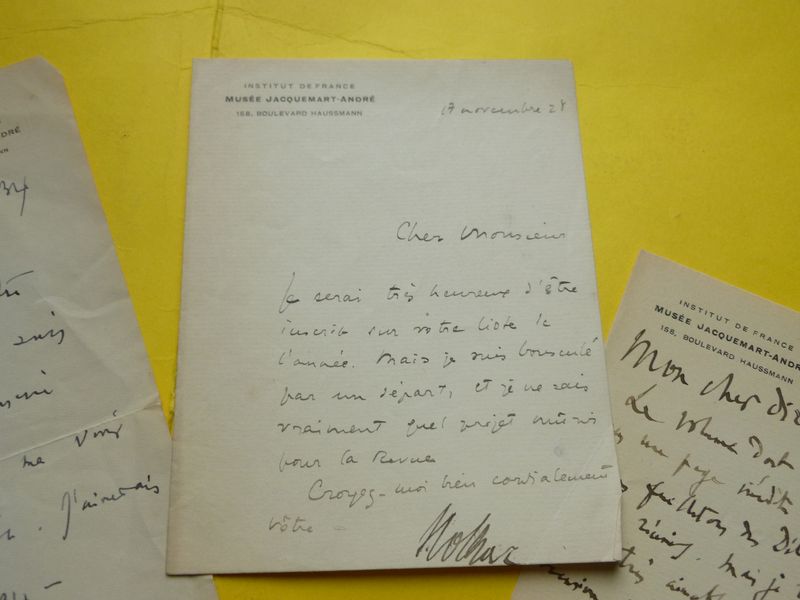 INSTITUT DE FRANCE
MUSÉE JACQUEMART-ANDRÉ
158, BOULEVARD HAUSSMANN
17 novembre 28
Cher Monsieur
Je serai très heureux d'être
inscrit sur votre liste de
l'année. Mais je suis bousculé
par un départ, et je ne sais
vraiment quel projet
pour la Revue
Croyez-moi bien cordialement
vôtre
DRÉ
suis
ma
J'aimerais
INSTITUT DE FRANCE
MUSÉE JACQUEMART-AN
158, BOULEVARD HAUSSMANN
Mon cher
Le volume dont
une page inédite
des
mais je